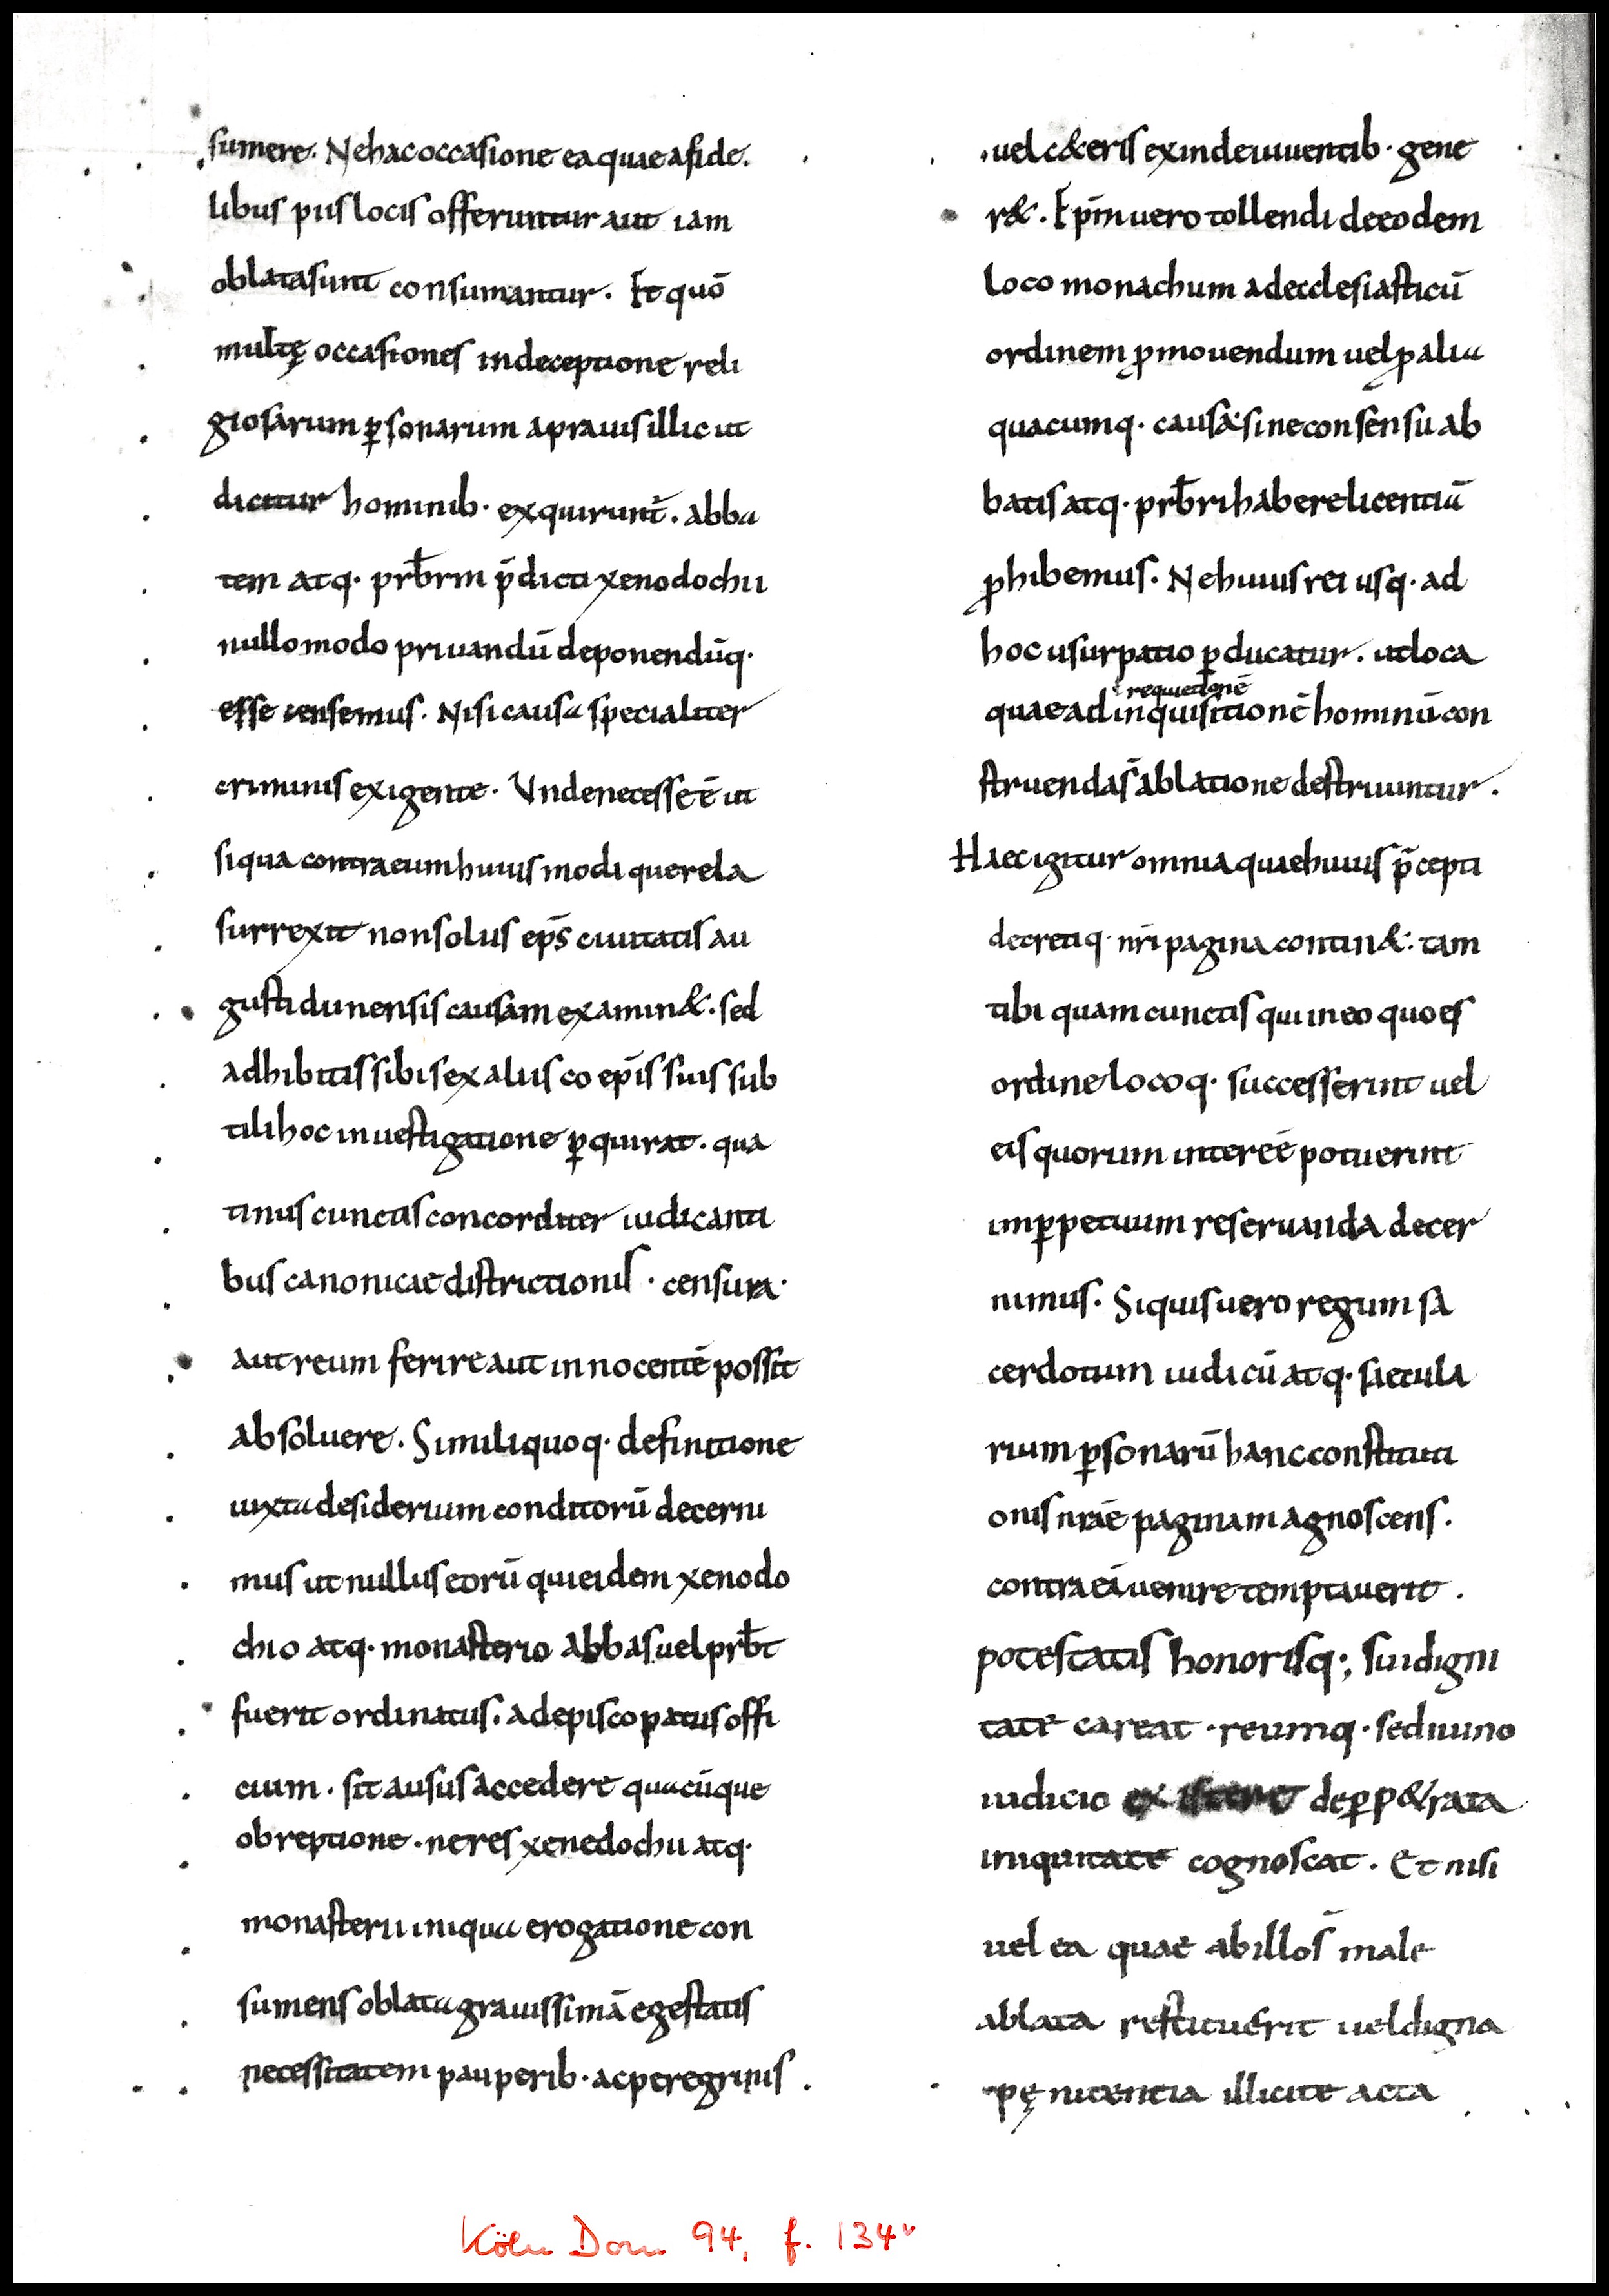 sumere. Ne hac occasione ea quae a fide.
libus piis locis offeruntur aut iam
oblata sunt consumantur. Et quō
multę occasiones in deceptione reli
giosarum p̱sonarum a prauis illic ut
dicitur hominib· exquirunt̃. abba
tem atq· prb̄rm p̄dicti xenodochii
nullo modo priuandū deponendūq·
esse censemus. Nisi causa specialiter
criminis exigente. Unde necesse ē ut
si qua contra eum huius modi querela
surrexit non solus ep̄s ciuitatis au
gustidunensis causam examin&. sed
adhibitis sibi sex aliis co ep̄is suis sub
tili hoc inuestigatione p̱quirat. qua
tinus cunctis concorditer iudicanti
bus canonicae districtionis. censura·
aut reum ferire aut innocentē possit
absoluere. Simili quoq· definitione
iuxta desiderium conditorū decerni
mus ut nullus eorū qui eidem xenodo
chio atq· monasterio abbas uel prb̄t
fuerit ordinatus. ad episcopatus offi
cium. sit ausus accedere quacūque
obreptione. ne res xenedochii atq·
monasterii iniqua erogatione con
sumens oblata grauissimā egestatis
necessitatem pauperib· ac peregrinis.
uel c&eris exinde uiuentib· gene
r&. Ep̄m uero tollendi de eodem
loco monachum ad ecclesiasticū
ordinem ꝓmouendum uel ꝓ alia
quacumq· causa: sine consensu ab
batis atq· prb̄ri habere licentiā
ꝓhibemus. Ne huius rei usq· ad
hoc usurpatio p̱ducatur. ut loca
requietionē
quae ad inquisitionē hominū con
struenda s̄ ablatione destruuntur.
Haec igitur omnia quae huius p̄cepti
decretiq· nr̄i pagina contin&: tam
tibi quam cunctis qui in eo quo es
ordine locoq· successerint uel
eis quorum interēē potuerint
imp̱petuum reseruanda decer
nimus. Si quis uero regum sa
cerdotum iudicū atq· saecula
rium p̱sonarū hanc constituti
onis nr̄ae paginam agnoscens.
contra eā uenire temptauerit.
potestatis honorisq·; sui digni
tate careat. reumq· se diuino
iudicio existere de p̱p&rata
iniquitate cognoscat. Et nisi
uel ea quae ab illo s̄ male
ablata restituerit uel digna
pęnitentia illicite acta
Köln Dom 94, f. 134v